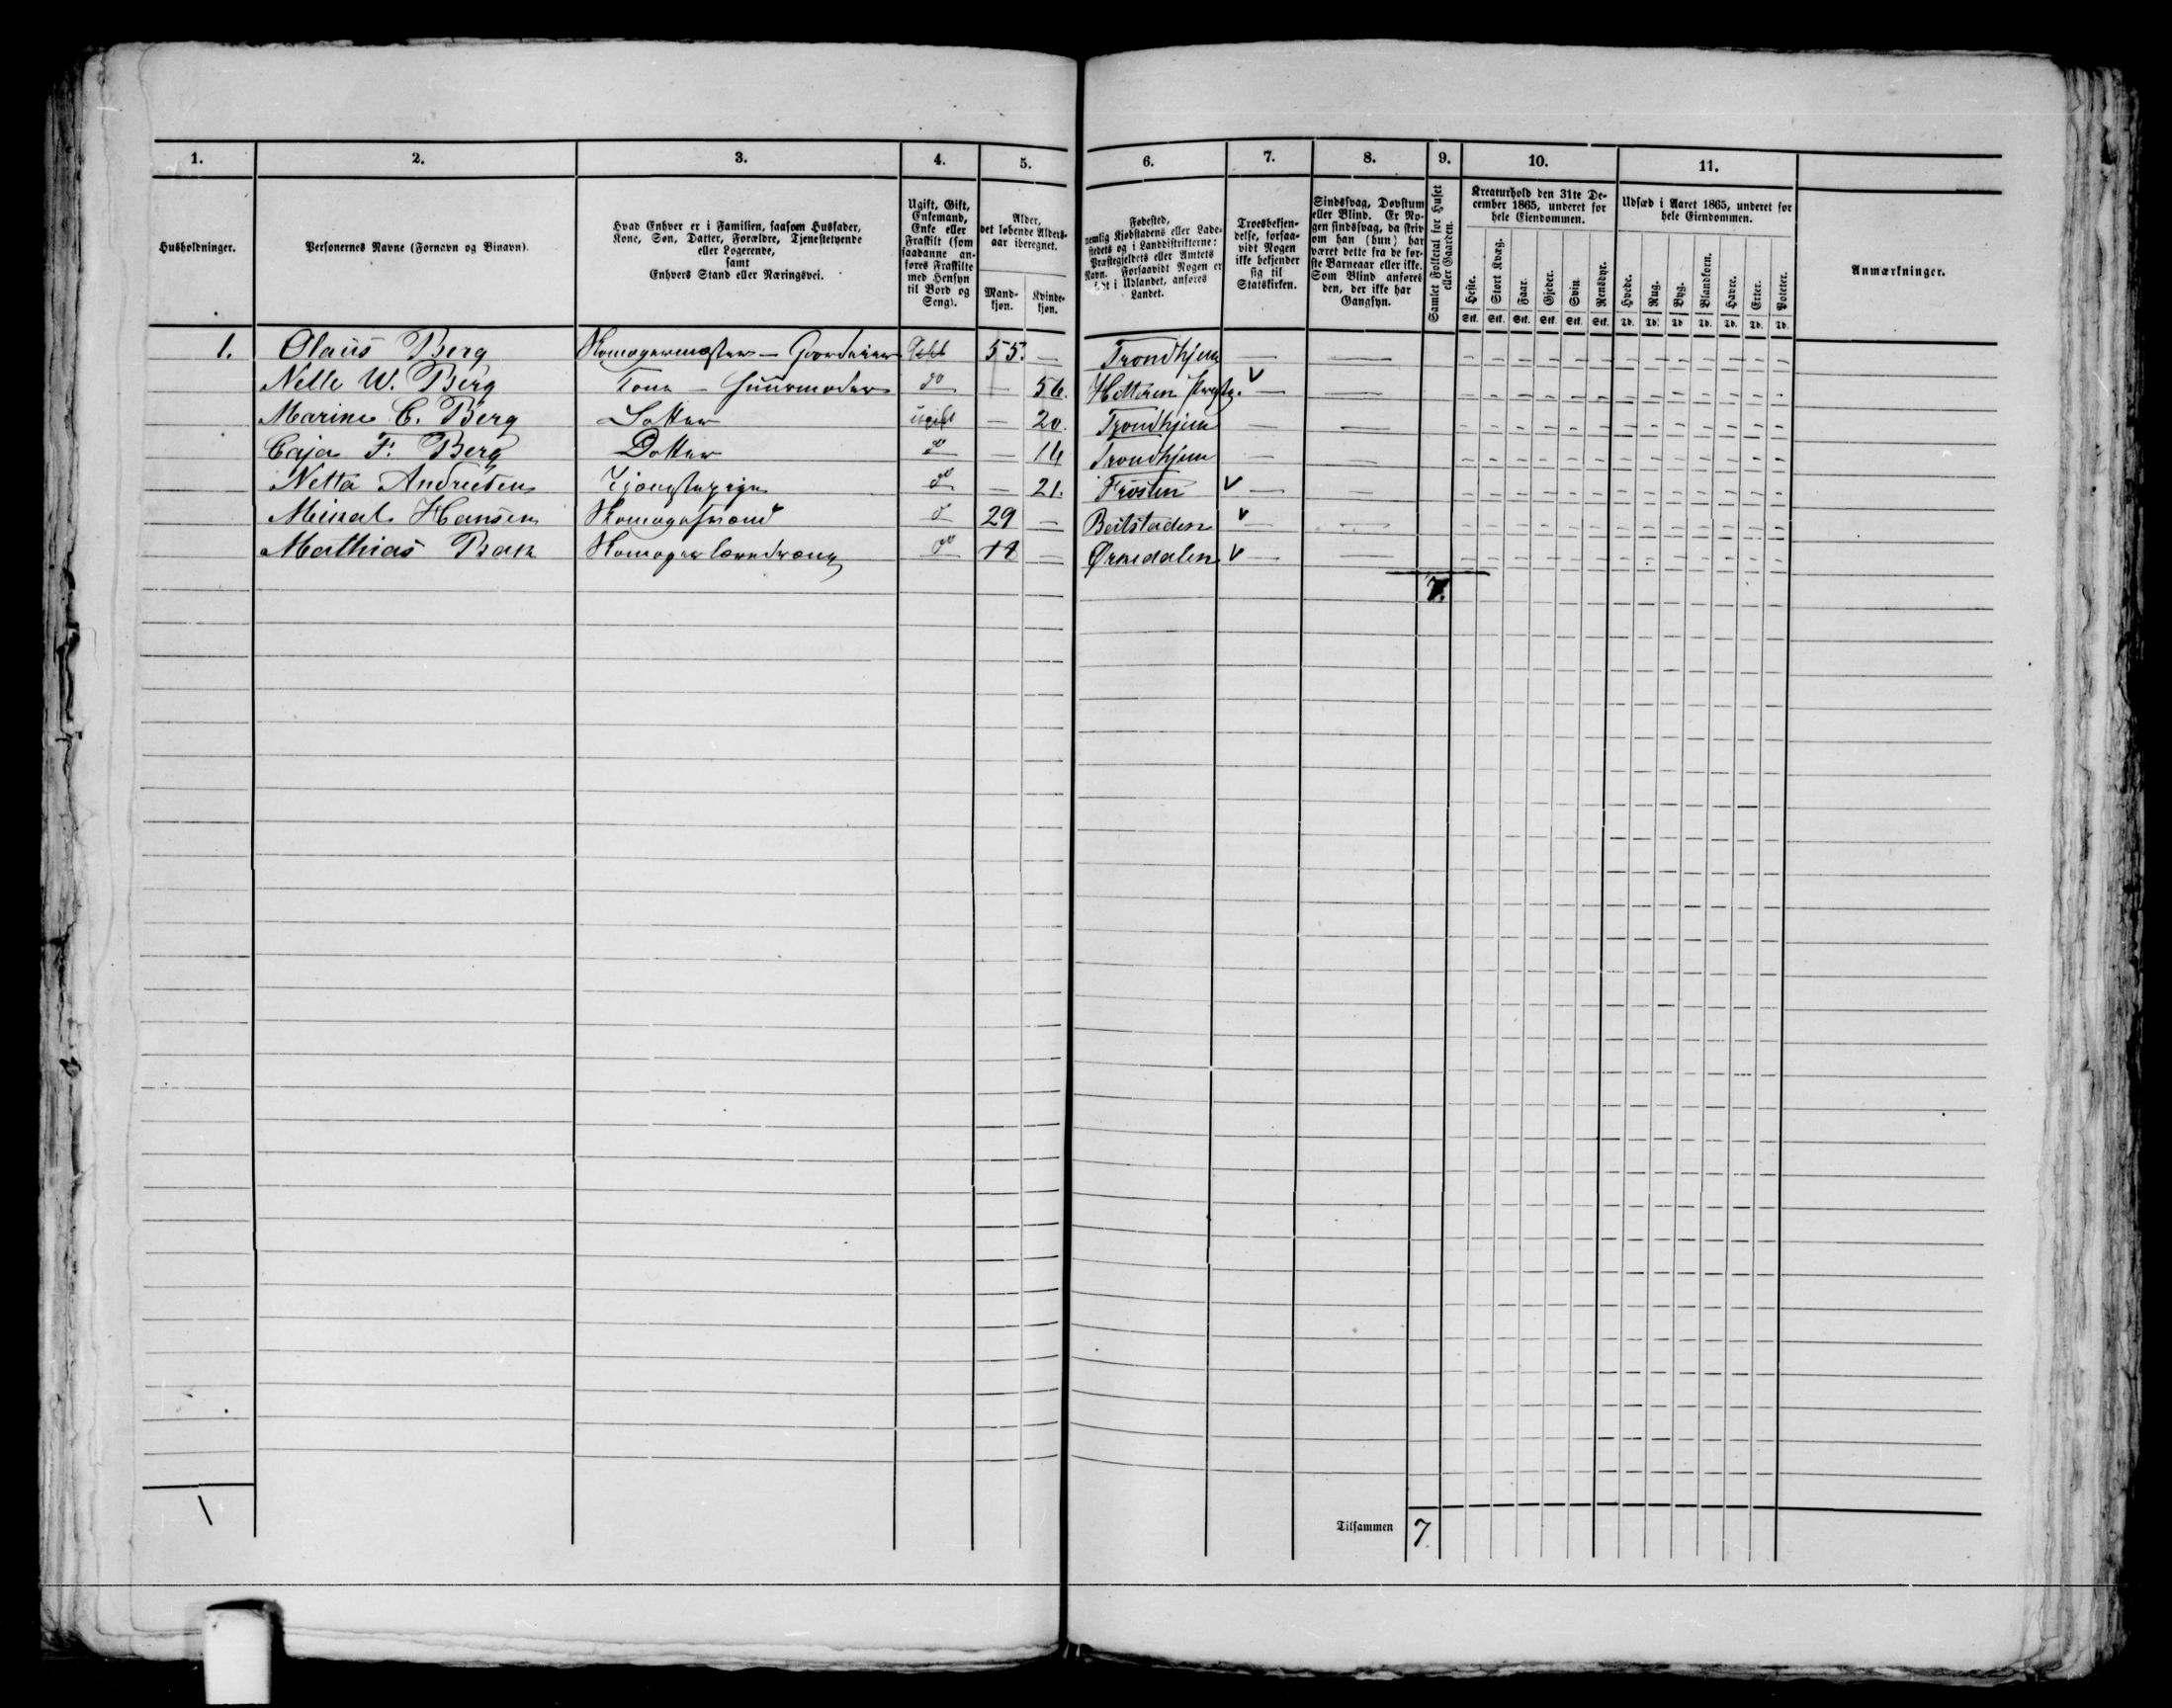 1. 2. 3. 4. 5. 6. 7. 8. 9. 10. 11.
Husholdninger.
Personernes Navne (Fornavn og Binavn).
Hvad Enhver er i Familien, saasom Husfader,
Kone, Søn, Datter, Forældre, Tjenestetyende
eller Logerende,
samt
Enhvers Stand eller Næringsvei.
Ugift, Gift,
Enkemand,
Enke eller
Fraskilt (som
saadanne an-
føres Fraskilte
med Hensyn
til Bord og
Seng).
Alder,
det løbende Alders-
aar iberegnet.
Mand-
kjøn.
Kvinde-
kjøn.
Fødested,
nemlig Kjøbstadens eller Lade-
stedets og i Landdistrikterne:
Præstegjeldets eller Amtets
Navn. Forsaavidt Nogen er
født i Udlandet, anføres
Landet.
Troesbekjen-
delse, forsaa-
vidt Nogen
ikke bekjender
sig til
Statskirken.
Sindssvag, Døvstum
eller Blind. Er No-
gen sindssvag, da skriv
om han (hun) har
været dette fra de før-
ste Barneaar eller ikke.
Som Blind anføres
den, der ikke har
Gangsyn.
Samlet Folketal for Huset
eller Gaarden.
Kreaturhold den 31te De-
cember 1865, underet for
hele Eiendommen.
Heste. Stort Kvæg. Faar. Gjeder. Svin. Rensdyr.
Stk. Stk. Stk. Stk. Stk. Stk.
Udsæd i Aaret 1865, underet for
hele Eiendommen.
Hvede. Rug. Byg. Blandkorn. Havre. Erter. Poteter.
Td. Td. Td. Td. Td. Td. Td.
Anmærkninger.
1. Olaus Berg Skomagermester – Gaardeier Gift 55. — Trondhjem
Nelle W. Berg Kone – Huusmoder do — 56. Hitteren Præstg. v
Marine C. Berg Datter ugift — 20. Trondhjem
Caja F. Berg Datter do — 14 Trondhjem
Netta Andreesen Tjenestepige do — 21. Frosten v
Meinal Hansen Skomagersvend do 29 — Beitstaden v
Mathias Skomager læredreng do 18 — Ørkedalen v
7.
1
Tilsammen 7.